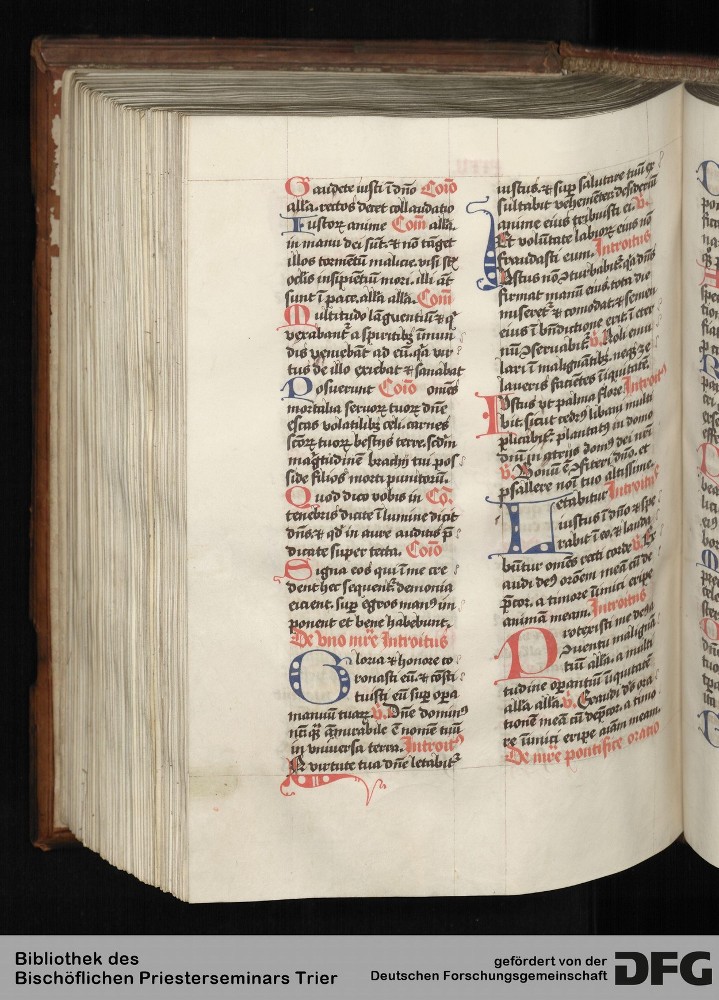 Gaudete iusti ī dn̄o Coīo
all'a. rectos decet collaudatio
Iustoꝝ anime Com̄ all'a.
in manu dei sūt. ⁊ nō tāget
illos tormētū malicie. visi st̄
oclis insipiētiū mori. illi āt
sunt ī pace. all'a all'a. Com̄
Multitudo lāguentiū ⁊ q̄
vexabant᷑ a spiritibꝫ īmun
dis veniebāt ad eū. qꝛ vir
tus de illo exiebat ⁊ sanabat
Posuerunt Coīo om̄es
mortalia seruoꝝ tuoꝝ dn̄e
escas volatilibꝫ celi. carnes
sc̄oꝝ tuoꝝ bestijs terre. scd̄m
maḡtudinē brachij tui pos
side filios morti punitorū.
Quod dico vobis in Co.
tenebris dicite ī lumine dicit
dn̄s. ⁊ qd̄ in aure auditis p̄
dicate super tecta. Coīo
Signa eos qui ī me cre
dent hec sequent᷑. demonia
eicient. sup̄ egros manꝰ im
ponent et bene habebunt.
De vno mr̄e Introitus
Gloria ⁊ honore co
ronasti eū. ⁊ cōsti
tuisti eū sup̄ opa
manuū tuaꝝ. v̄. Dn̄e dominꝰ
nr̄ qͣ am̄irabile ē nomē tuū
in vniuersa terra. Introitꝰ
In virtute tua dn̄e letabit᷑
iustus. ⁊ sup̄ salutare tuū ex
sultabit vehemēter. desideriū
anime eius tribuisti ei. v̄.
Et volūtate labioꝝ eius nō
fraudasti eum. Introitus
Iustus nō ꝯturbabit᷑. qꝛ dn̄s
firmat manū eius. tota die
miseret᷑ ⁊ comodat. ⁊ semen
eius ī bn̄dictione erit. ī eter
nū ꝯseruabit᷑. v̄. Noli emu
lari ī malignātibꝫ. neqꝫ ze
laueris faciētes īiquitatē.
Iustus vt palma flore. Introitꝰ
bit sicut cedrꝰ libani multi
plicabit᷑. plantatꝰ in domo
dn̄i. in atrijs domꝰ dei nr̄i
v̄. Bonū ē ꝯfiteri dn̄o. et
psallere noī tuo altissime.
Letabitur Introitus
iustus ī dn̄o ⁊ spe
rabit ī eo. ⁊ lauda
būtur om̄es recti corde v̄. Ex
audi deꝰ or̄oem meā cū de
p̄cor. a timore īimici eripe
animā meam. Introitus
Protexisti me deꝰ a
ꝯuentu maligna
tiū all'a. a multi
tudine opantiū īiquitatē
all'a all'a. v̄. Exaudi dꝰ ora
tionē meā cū dep̄cor. a timo
re īimici eripe aīam meam.
De mr̄e pontifice oratio
Bibliothek des
Bischöflichen Priesterseminars Trier
gefördert von der
Deutschen Forschungsgemeinschaft
DFG